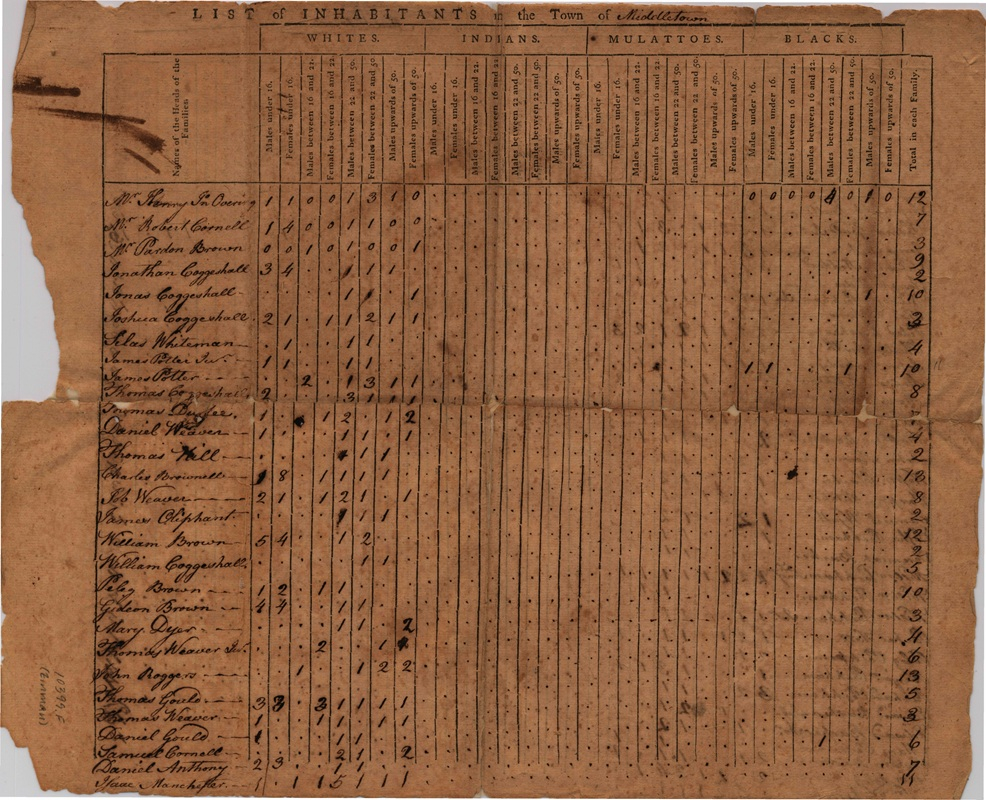 LIST of INHABITANTS in the Town of Middletown
WHITES. INDIANS. MULATTOES. BLACKS.
Names of the Heads of the Families
Males under 16. Females under 16. Males between 16 and 22. Females between 16 and 22. Males between 22 and 50. Females between 22 and 50. Males upwards of 50. Females upwards of 50. Males under 16. Females under 16. Males between 16 and 22. Females between 16 and 22. Males between 22 and 50. Females between 22 and 50. Males upwards of 50. Females upwards of 50. Males under 16. Females under 16. Males between 16 and 22. Females between 16 and 22. Males between 22 and 50. Females between 22 and 50. Males upwards of 50. Females upwards of 50. Males under 16. Females under 16. Males between 16 and 22. Females between 16 and 22. Males between 22 and 50. Females between 22 and 50. Males upwards of 50. Females upwards of 50. Total in each Family.
Mr. Henry Jn Overing 1 1 0 0 1 3 1 0 0 0 0 0 4 0 1 0 12
Mr. Robert Cornell 1 4 0 0 1 1 0 0 7
Mr. Pardon Brown 0 0 1 0 1 0 0 1 3
Jonathan Coggeshall 3 4 1 1 1 9
Jonas Coggeshall 1 1 1 2
Joshua Coggeshall 2 1 1 1 2 1 1 10
Silas Whiteman 1 1 1 3
James Potter Junr. 1 1 1 1 4
James Potter 2 1 3 1 1 1 1 1 10
Thomas Coggeshall 2 3 1 1 1 8
Thomas Durfee 1 1 2 1 2
Daniel Weaver 1 1 1 1 4
Thomas Hill 1 1 2
Charles Brownell 8 1 1 1 1 13
Job Weaver 2 1 1 2 1 1 8
James Oliphant 1 1 2
William Brown 5 4 1 2 12
William Coggeshall 1 1 2
Peleg Brown 1 2 1 1 5
Gideon Brown 4 4 1 1 10
Mary Dyer 1 1 2
Thomas Weaver Junr. 2 1 4
John Roggers 1 1 2 2 6
Thomas Gould 3 3 3 1 1 1 1 13
Thomas Weaver 1 1 1 1 1 5
Daniel Gould 1 1 1 3
Samuel Cornell 2 1 2 1 6
Daniel Anthony 2 3 1 1 7
Isaac Manchester 1 1 1 5 1 1 1 11
10399 F